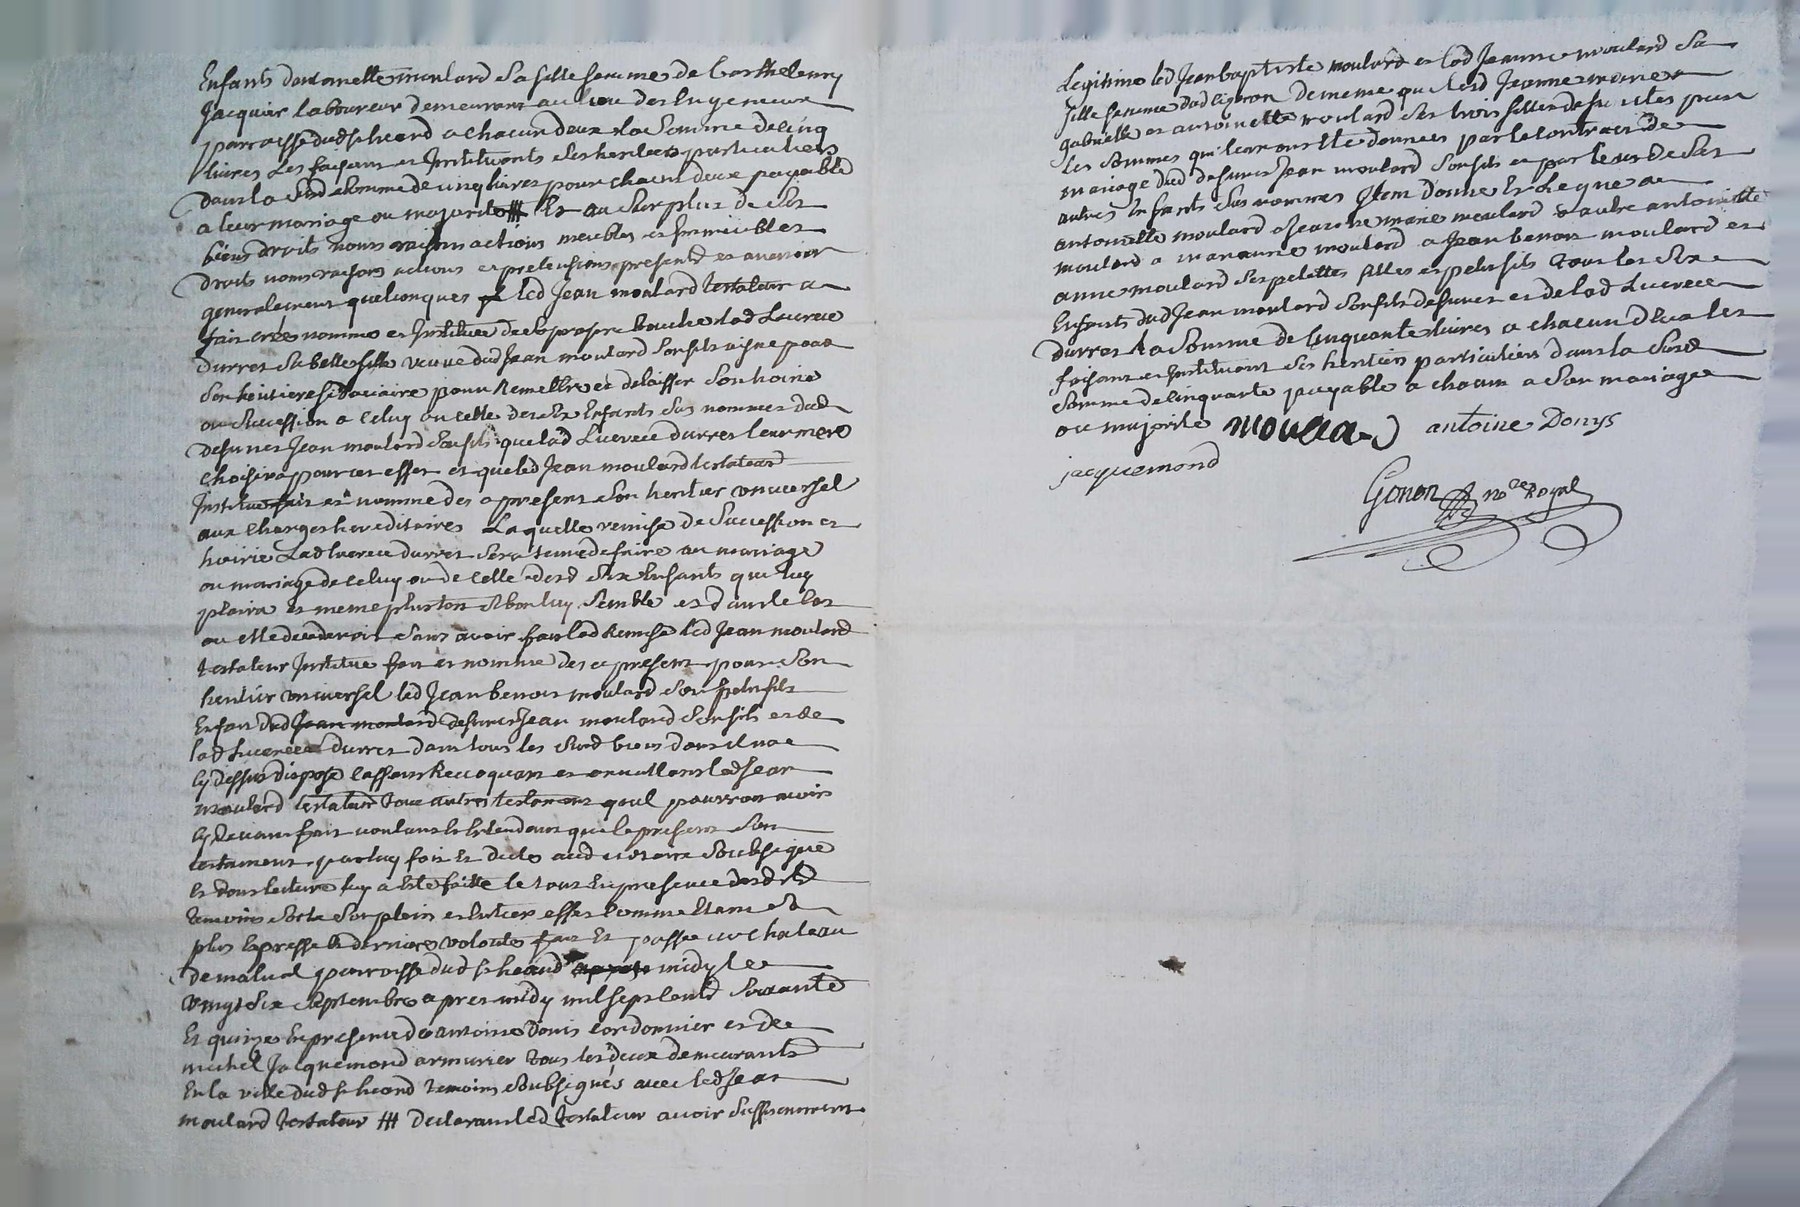 Enfants dantoinette moulard sa fille femme de barthelemy
Jacquier laboureur demeurant au lieu des Ingenieux
parroisse dud st heand a chacun deux la Somme de cinq
livres Les faisant et Instituants ses heritiers particuliers
dans la susd Somme de cinq livres pour chacun deux payable
a leur mariage ou majorité ## Et au Surplus de Ses
biens droits noms raisons actions meubles et Immeubles
droits noms raisons actions et pretensions presents et avenir
generalement quelconques led Jean moulard testateur a
fait crée nommé et Institué de sa propre bouche lad Lucrece
durret sa belle fille veuve dud Jean moulard son fils aisné pour
son heritiere fiduciaire pour Remettre et delaisser Son hoirie
ou Succession a celuy ou celle des six Enfants Sus nommes dud
defunct Jean moulard Son fils que lad Lucrece durret leur mere
choisira pour cet effet et que led Jean moulard testateur
Institue fait et nomme des apresent Son heritier universel
aux charges hereditaires Laquelle remise de Succession et
hoirie Lad Lucrece durret sera tenue de faire au mariage
ou mariage de celuy ou de celle desd Six Enfants que luy
plaira et meme plustost si bon luy Semble et dans le cas
ou elle decederoit Sans avoir fait lad Remise led Jean moulard
testateur Institue fait et nomme des apresent pour Son
heritier universel led Jean benoit moulard Son petit fils
Enfant dud Jean moulard defunct Jean moulard Son fils et de
lad Lucrece durret dans tous les Susd biens dont il na
cy dessus disposé Cassant Revoquant et annullant led Jean
moulard testateur tout autres testament quil pourroit avoir
cy devant fait voulant Et Entendant que le present Son
testament par luy fait Et dicté aud notaire Soubsigné
Et dont lecture luy a Esté faitte le tout En presence desd
temoins Sorte Son plein et Entier effet Comme Etant Sa
plus Expresse Et derniere volonté fait Et passé au chateau
de malval parroisse dud st heand midy le
vingt Six Septembre apres midy mil Sept Cents Soixante
Et quinze En presence de antoine donis cordonnier et de
michel Jacquemond armurier tous les deux demeurants
En la ville dud st heand temoins Soubsignés avec led Jean
moulard testateur ## declarant led testateur avoir Suffisamment
Legitimé led Jean baptiste moulard et lad Jeanne moulard Sa
fille femme dud ligeron de meme que lesd Jeanne marie
gabrielle et antoinette moulard Ses trois filles defunctes pour
les Sommes qui leur ont Eté données par le contract de
mariage dud defunct Jean moulard Son fils et par ceux de Ses
autres Enfants Sus nommes Item donne Et Legue a
antoinette moulard a Jeanne marie moulard a autre antoinette
moulard a marianne moulard a Jean benoit moulard et
anne moulard Ses petittes filles et petit fils tous les Six
Enfants dud Jean moulard Son fils defunct et de lad Lucrece
durret la Somme de Cinquante livres a chacun deux les
faisant et Instituant Ses heritiers particuliers dans la Susd
Somme de cinquante payable a chacun a Son mariage
ou majorité moulard antoine Donys
jacquemond
Gonon nore Royal